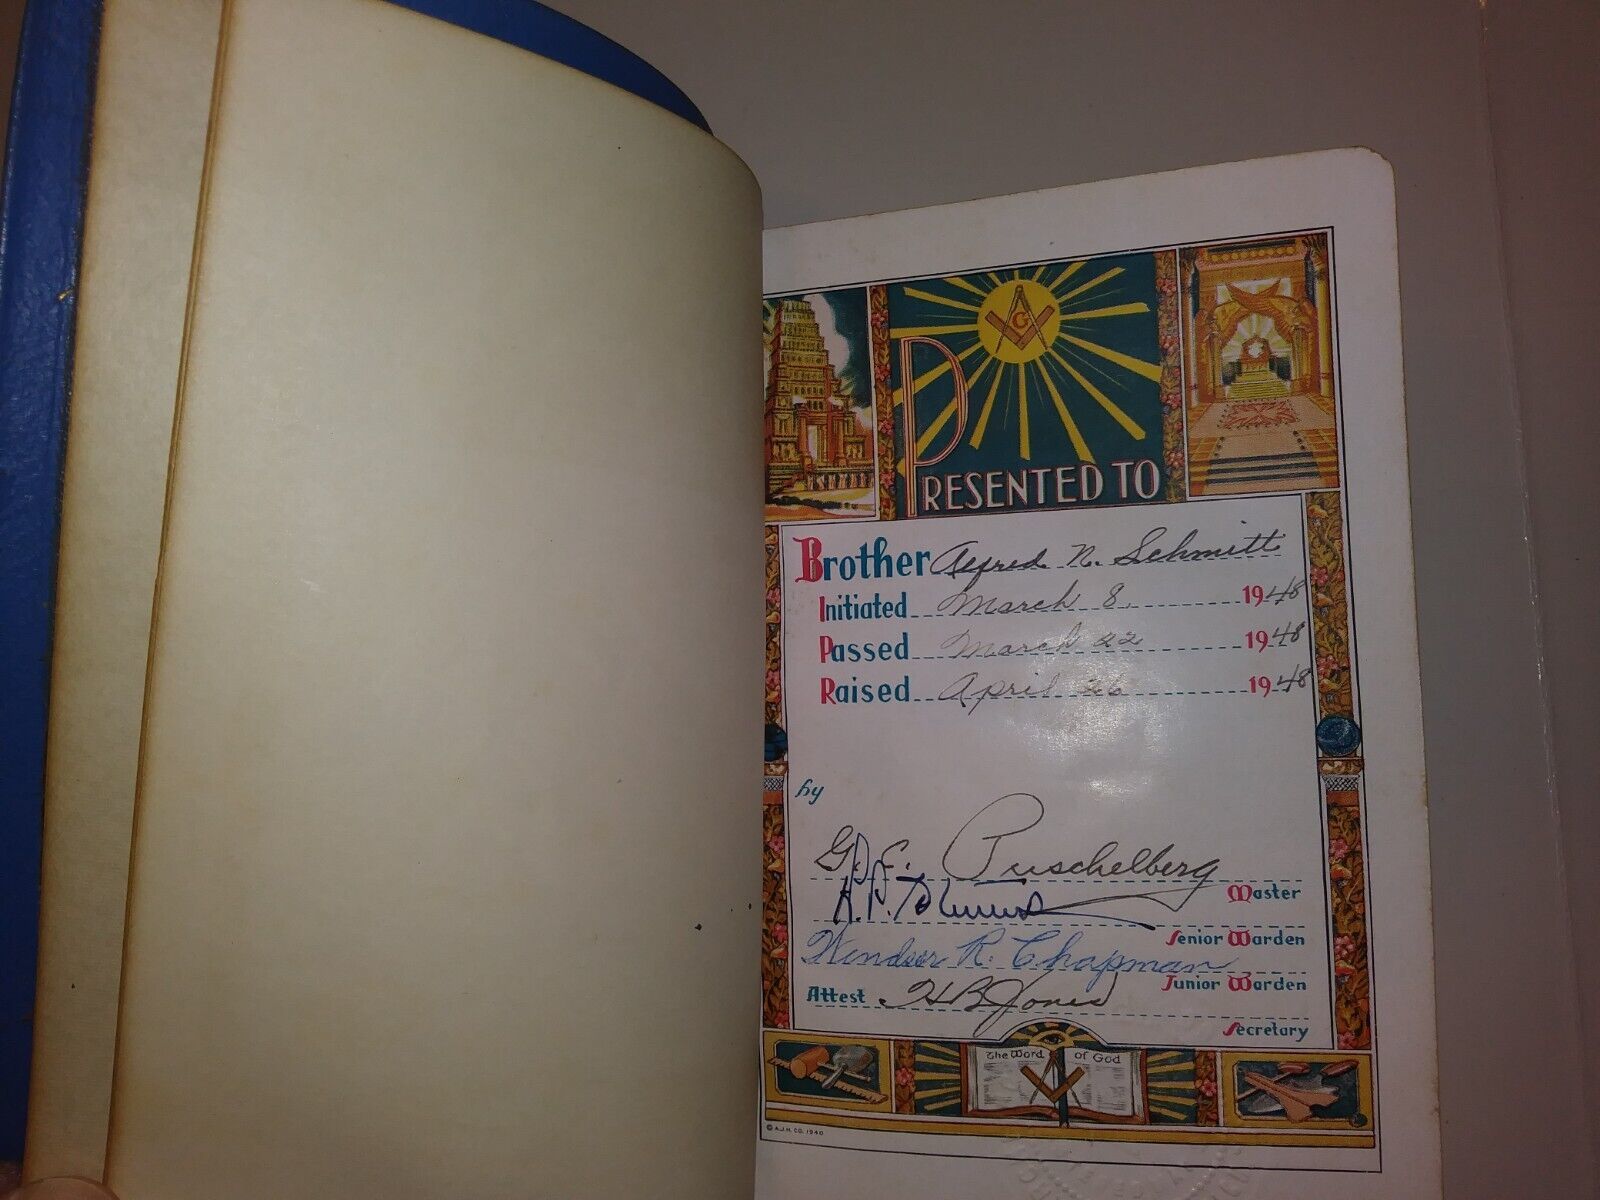 G
PRESENTED TO
Brother Alfred N. Schmitt
Initiated March 8, 1948
Passed March 22 1948
Raised April 26 1948
by
G. E. Puschelberg
Master
Senior Warden
Windsor R. Chapman
Junior Warden
Attest H B Jones
Secretary
The Word of God
© A.J.H. CO. 1940